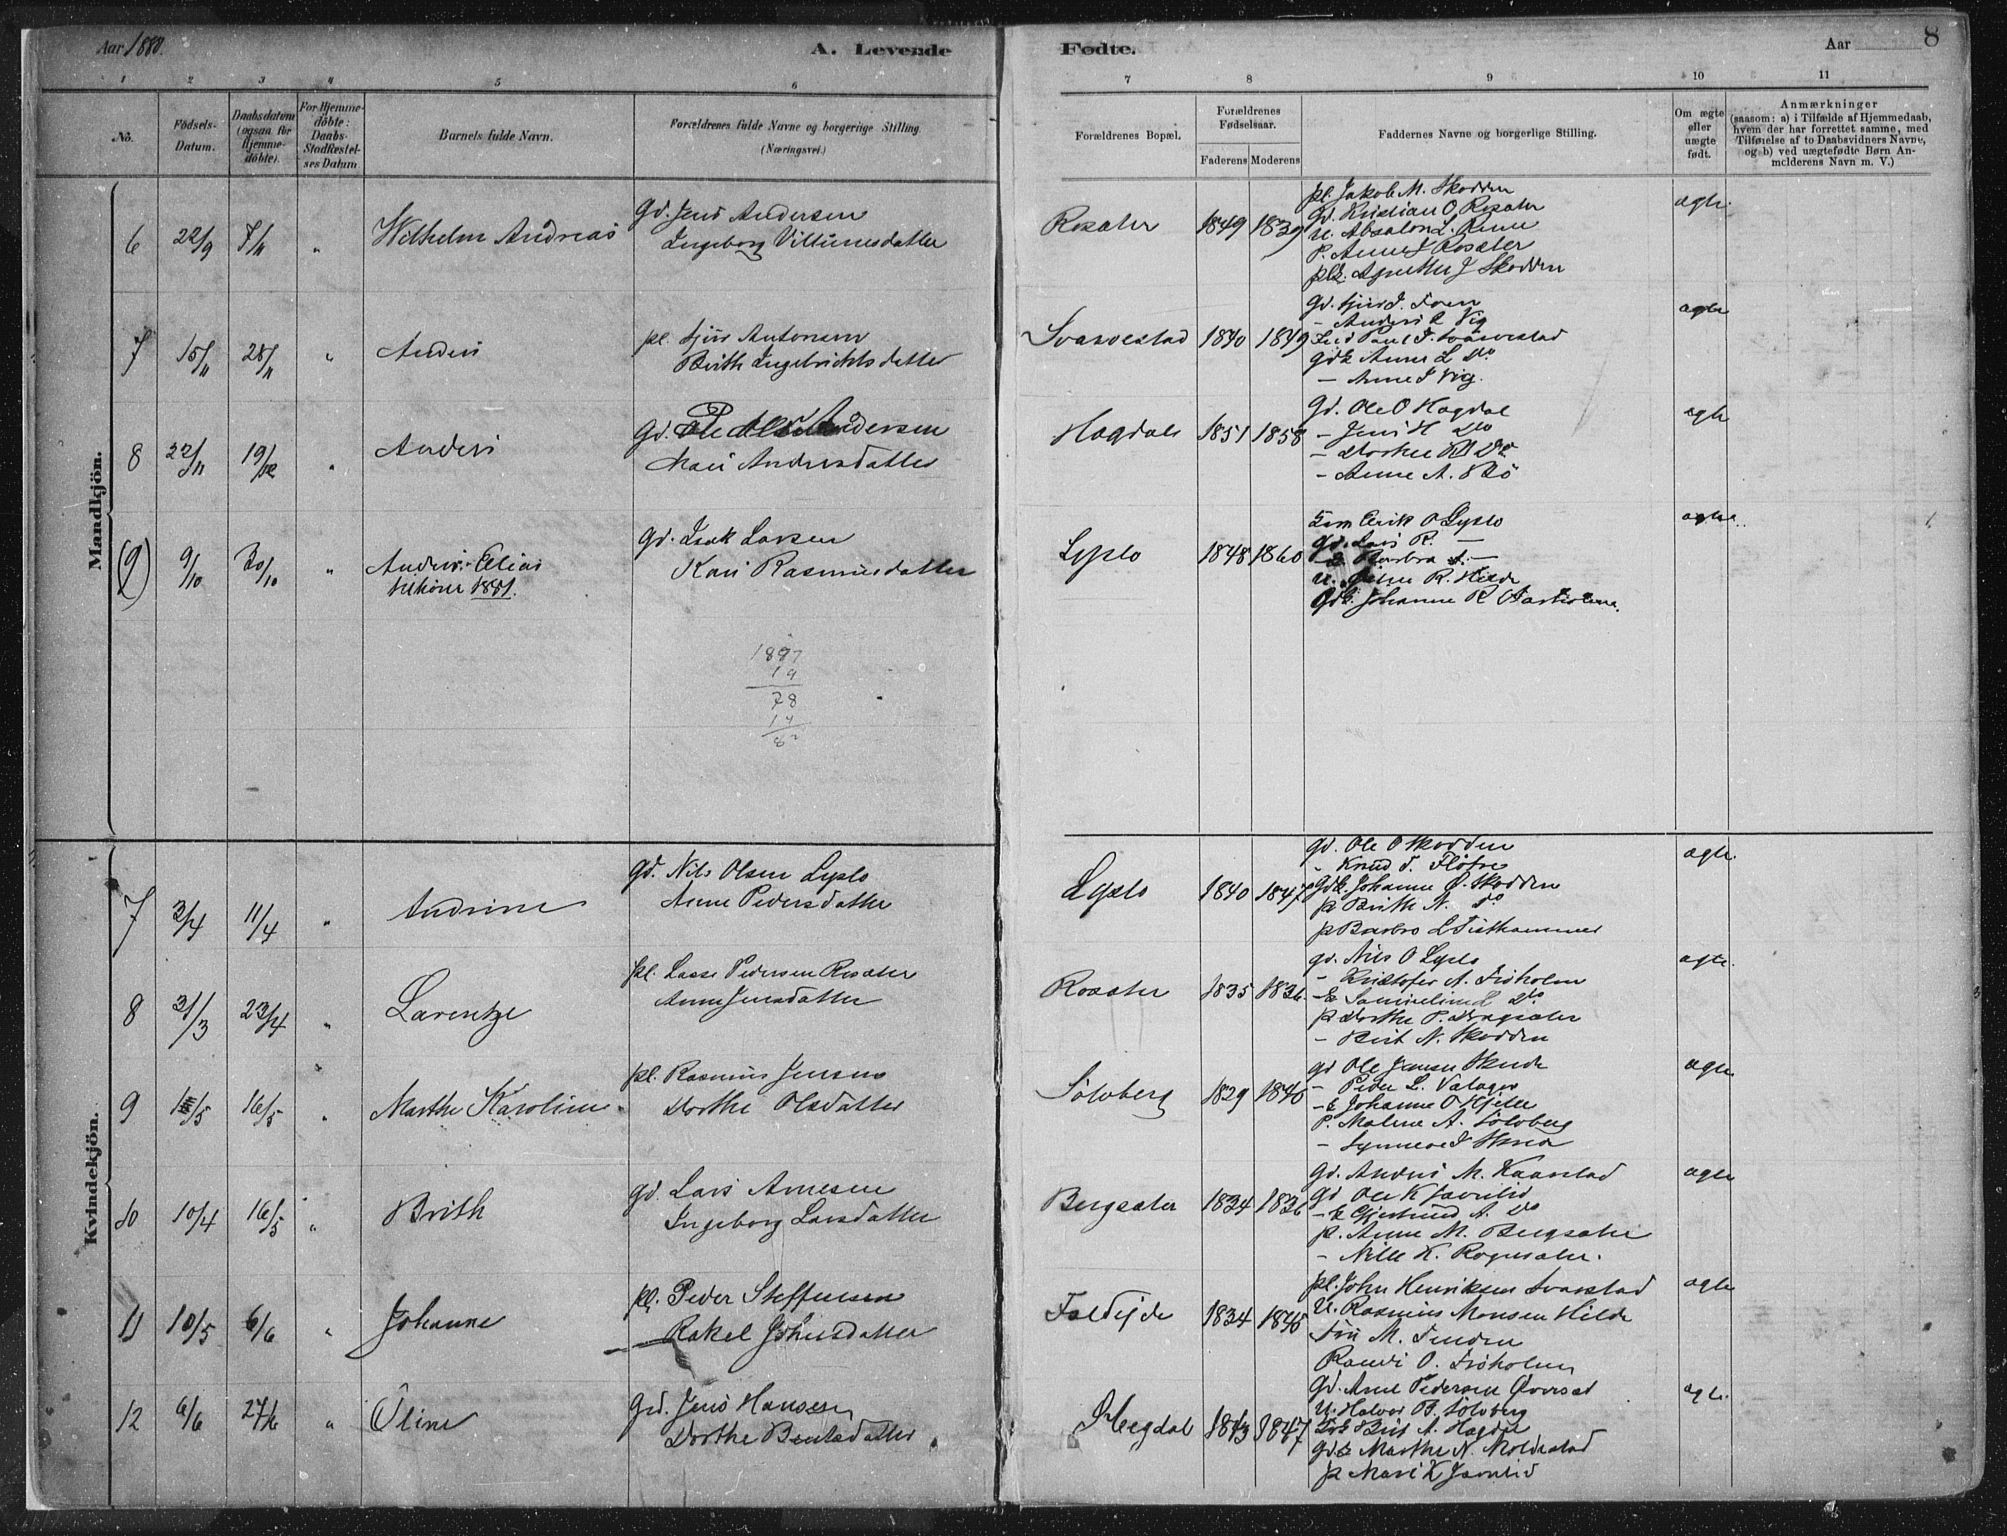 Aar 1880.
A. Levende
Fødte.
Aar
8
1 2 3 4 5 6 7 8 9 10 11
No.
Födsels-Datum.
Daabsdatum (ogsaa for Hjemmedöbte).
For Hjemmedöbte: Daabs-Stadfæstelses Datum
Barnets fulde Navn.
Forældrenes fulde Navne og borgerlige Stilling. (Næringsvei.)
Forældrenes Bopæl.
Forældrenes Fødselsaar.
Faderens Moderens
Faddernes Navne og borgerlige Stilling.
Om ægte eller uægte født.
Anmærkninger (saasom: a) i Tilfælde af Hjemmedaab, hvem der har forrettet samme, med Tilføielse af to Daabsvidners Navne, og b) ved uægtefødte Børn Anmelderens Navn m. V.)
Mandkjön.
6 22/9 7/11 " Wilhelm Andreas
Gd. Jens Andersen
Ingeborg Villumsdatter
Rosæter 1849 1839
pl. Jakob M. Skodden
Gd. Kristian O. Rosæter
U. Absalon L. Renne
P. Anne J Rosæter
plk. Agnethe J Skodden
ægte
7 15/11 28/11 " Anders
pl. Sjur Antonsen
Brith Ingebrichtsdatter
Svarvestad 1840 1849
Gd. Sjur J. Foen
- Anders R Vig
Paul J. Svarvestad
gdk Anne L Do
- Anne J Vig.
ægte
8 22/11 19/12 " Anders
Gd. Andersen
Mari Andersdatter
Hagdal 1851 1858
Gd. Ole O Hagdal
- Jens H Do
- Dorthe R Do
- Anne A. Bø
ægte
(9) 9/10 30/10 " Anders Elias
tilhører 1881.
Gd. Isak Larsen
Kari Rasmusdatter
Lyslo 1848 1860
Erik O Lyslo
Gd. Lars R. —
k Barbra —
U. R. Hilde
Gdk. Johanne R
ægte
1897
19
78
14
82
Kvindekjön.
7 3/4 11/4 " Andrine
Gd. Nils Olsen Lyslo
Anne Pedersdatter
Lyslo 1840 1847
gd. Ole O Skodden
" Knud T. Flofre
Gdk. Johanne O. Skodden
p Brith N. Do
p Barbro L Fisthammer
ægte.
8 31/3 23/4 " Larentze
pl. Lasse Pedersen Rosæter
Anne Jensdatter
Rosæter 1835 1836
gd. Nils O Lyslo
- Kristofer A. Frøholm
-k L Do
p Dorthe P. Bergsæter
- Brit N. Skodden
ægte.
9 /5 16/5 " Marthe Karoline
pl. Rasmus Jensen
Dorthe Olsdatter
Sølvberg 1829 1846
gd Ole Jensen Skrede
- Peder L. Valager
-k Johanne O Hjelle
P. Malene A. Sølvberg
- Synneve J Skrede
ægte
10 10/4 16/5 " Brith
gd. Lars Arnesen
Ingeborg Larsdatter
Bergsæter 1834 1836
Gd. Anders M. Kaarstad
gd Ole K Jarnlid
-k Gjertrud A. Do
p. Anne M. Bergsæter
- Nille K. Rognsæter.
ægte
11 10/5 6/6 " Johanne
pl. Peder Steffensen
Rakel Johnsdatter
Faldejde 1834 1845
pl. John Henriksen Svarstad
U. Rasmus Monsen Hilde
M. Tenden
Randi O. Frøholm
ægte
12 6/6 27/6 " Oline
Gd. Jens Hansen
Dorthe Bentsdatter
Hegdal 1843 1847
Gd. Arne Pedersen Øvrestad
U. Halvor B. Sølvberg
Brit A. Hagdal
Gdk Marthe N. Moldestad
p Mari K Jarnlid
ægte.